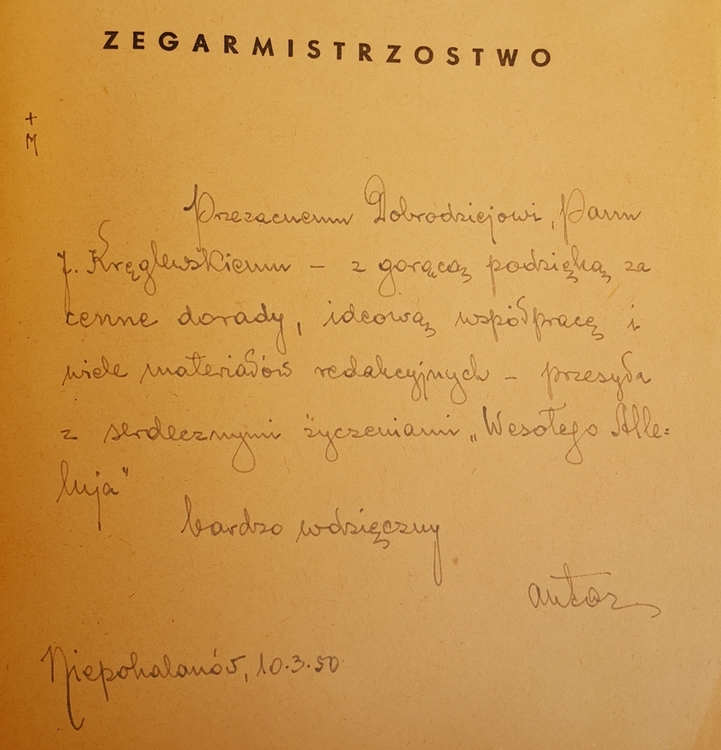 ZEGARMISTRZOSTWO
+
M
Przezacnemu Dobrodziejowi, Panu
J. Kręglewskiemu – z gorącą podzięką za
cenne dorady, ideową współpracę i
wiele materiałów redakcyjnych – przesyła
z serdecznymi życzeniami „Wesołego Alle=
luja"
bardzo wdzięczny
autor
Niepokalanów, 10.3.50